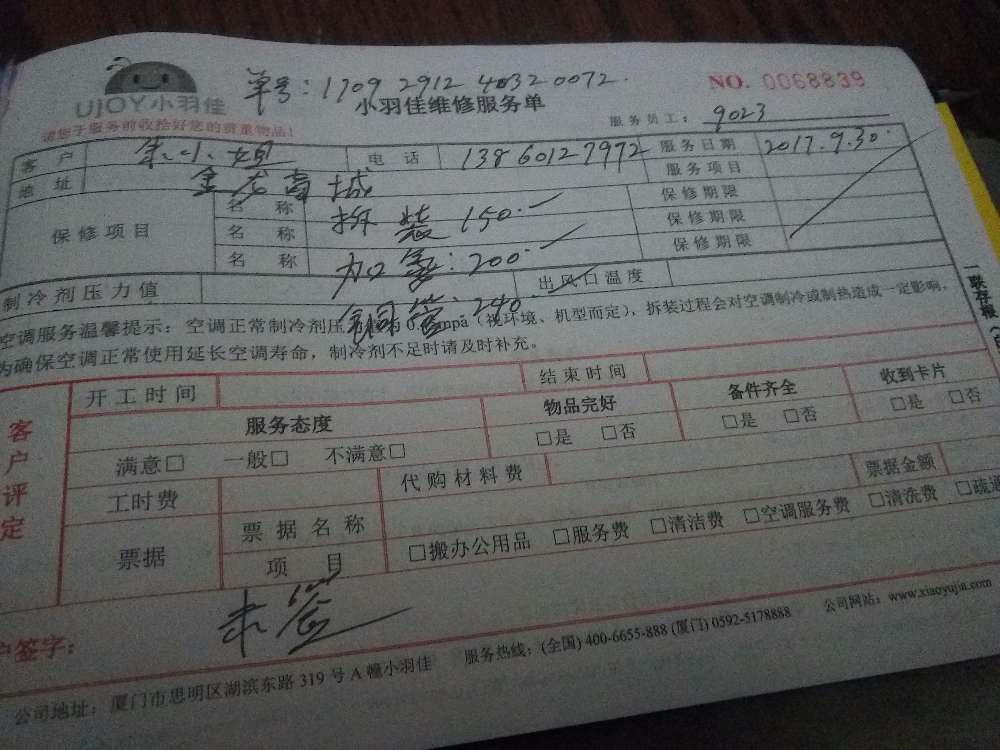 单号：1709 2912 40320072.
NO. 0068839
UJOY小羽佳
小羽佳维修服务单
请您于服务前收拾好您的贵重物品！
服务员工：9023
客 户 朱小姐 电 话 13860127972 服务日期 2017.9.30.
地 址 金龙商城 服务项目
保修项目
名 称 拆装 150.- 保修期限
名 称 加氟：200 保修期限
名 称 铜管：240. 保修期限
制冷剂压力值 出风口温度
空调服务温馨提示：空调正常制冷剂压 为0. mpa（视环境、机型而定），拆装过程会对空调制冷或制热造成一定影响，
为确保空调正常使用延长空调寿命，制冷剂不足时请及时补充。
一联存根
客户评定
开工时间 结束时间
服务态度 物品完好 备件齐全 收到卡片
满意□ 一般□ 不满意□ □是 □否 □是 □否 □是 □否
工时费 代购材料费 票据金额
票据 票据名称
项 目 □搬办公用品 □服务费 □清洁费 □空调服务费 □清洗费 □疏通
户签字：
公司地址：厦门市思明区湖滨东路 319 号 A 幢小羽佳 服务热线：(全国) 400-6655-888 (厦门) 0592-5178888 公司网站：www.xiaoyujia.com